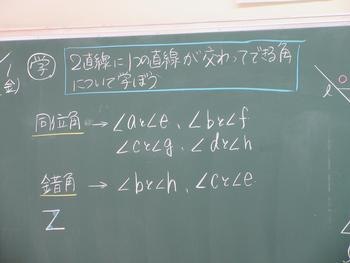 (金)
学 2直線に1つの直線が交わってできる角
について学ぼう
同位角 → ∠aと∠e、∠bと∠f
∠cと∠g、∠dと∠h
錯角 → ∠bと∠h、∠cと∠e
Z
l